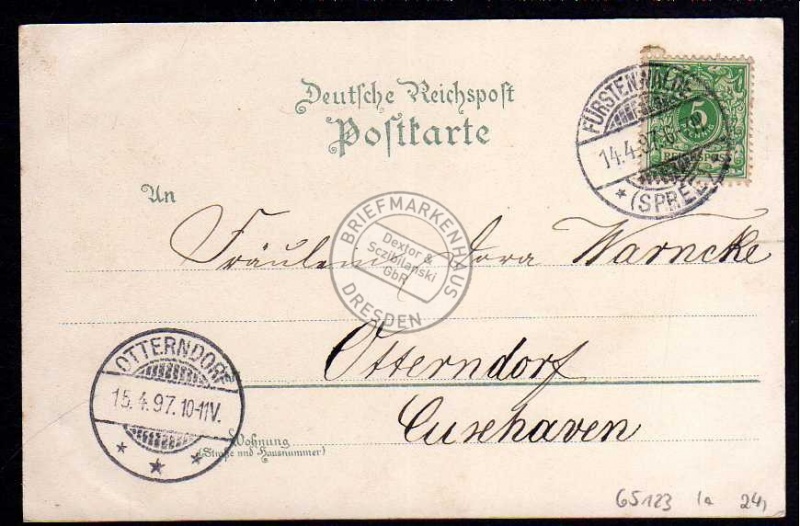 Deutsche Reichspost
Postkarte
FÜRSTENWALDE
14.4.97.6
(SPREE)
5
An
Fräulein Dora Warncke
BRIEFMARKENHAUS
Dextor &
Sczibilanski
GbR
DRESDEN
Otterndorf
Cuxhaven
OTTERNDORF
15.4.97.10-11V.
Wohnung
(Straße und Hausnummer)
65123 1a 24,